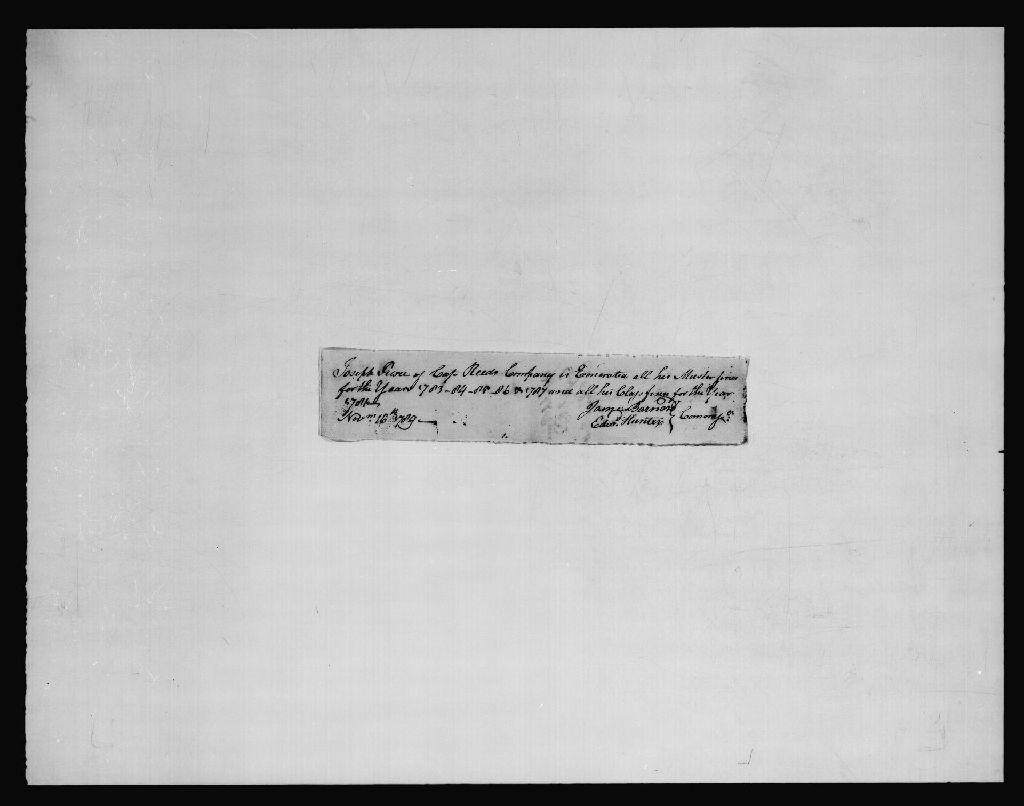 Joseph of Capt Reeds Company is Exonerated all his Muster fines
for the Years 1783 - 84 - 85 - 86 & 1787 and all his Class fines for the Year

Novm 18th 1789
James Barnard
Edwd. Hunter